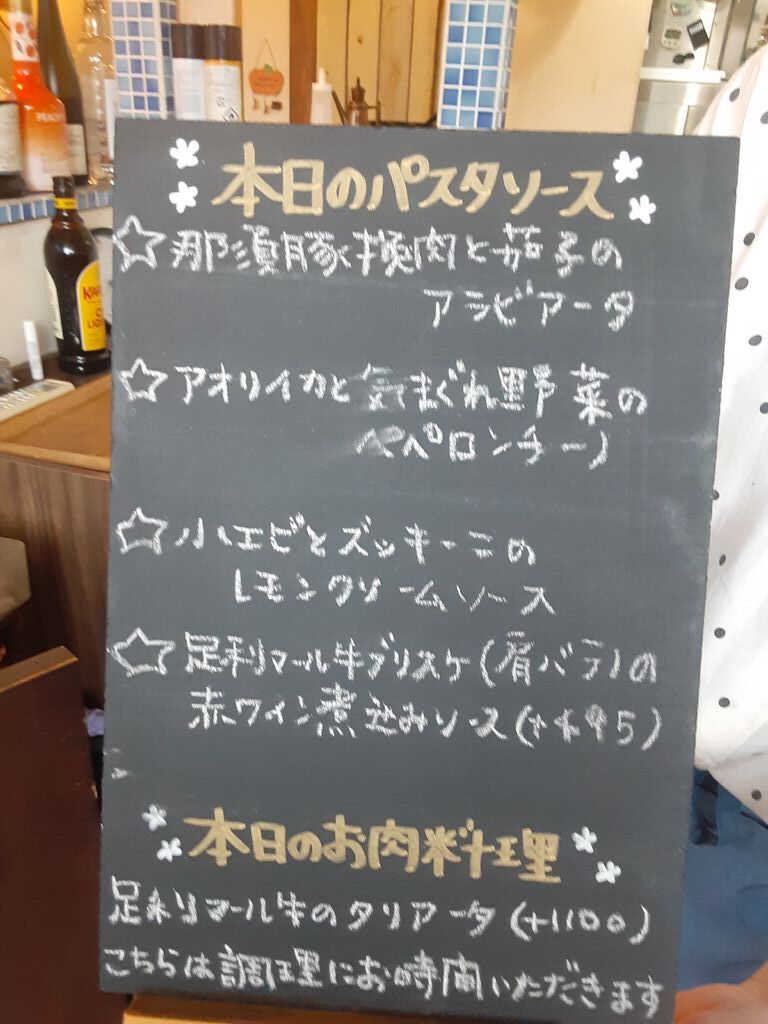 本日のパスタソース
☆那須豚挽肉と茄子の
アラビアータ
☆アオリイカと気まぐれ野菜の
ペペロンチーノ
☆小エビとズッキーニの
レモンクリームソース
☆足利マール牛ブリスケ(肩バラ)の
赤ワイン煮込みソース
本日のお肉料理
足利マール牛のタリアータ(+1100)
こちらは調理にお時間いただきます